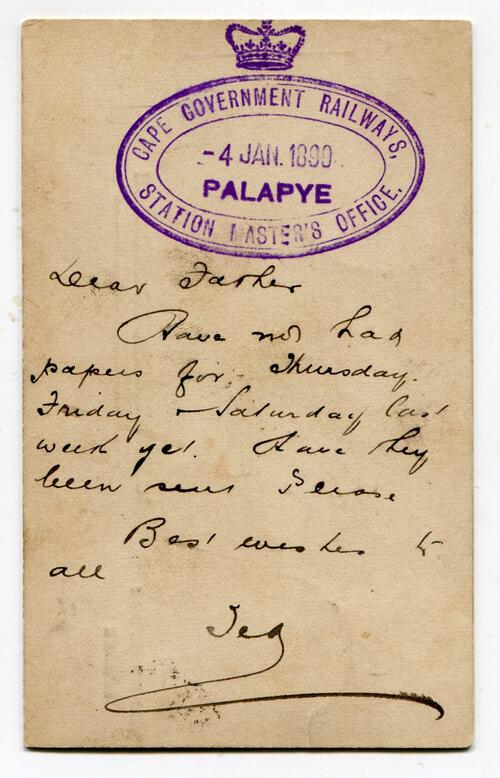 CAPE GOVERNMENT RAILWAYS,
-4 JAN. 1899
PALAPYE
STATION MASTER'S OFFICE.
Dear Father
Have not had
papers for Thursday.
Friday & Saturday last
week yet. Have they
been sent Please.
Best wishes to
all
Ted